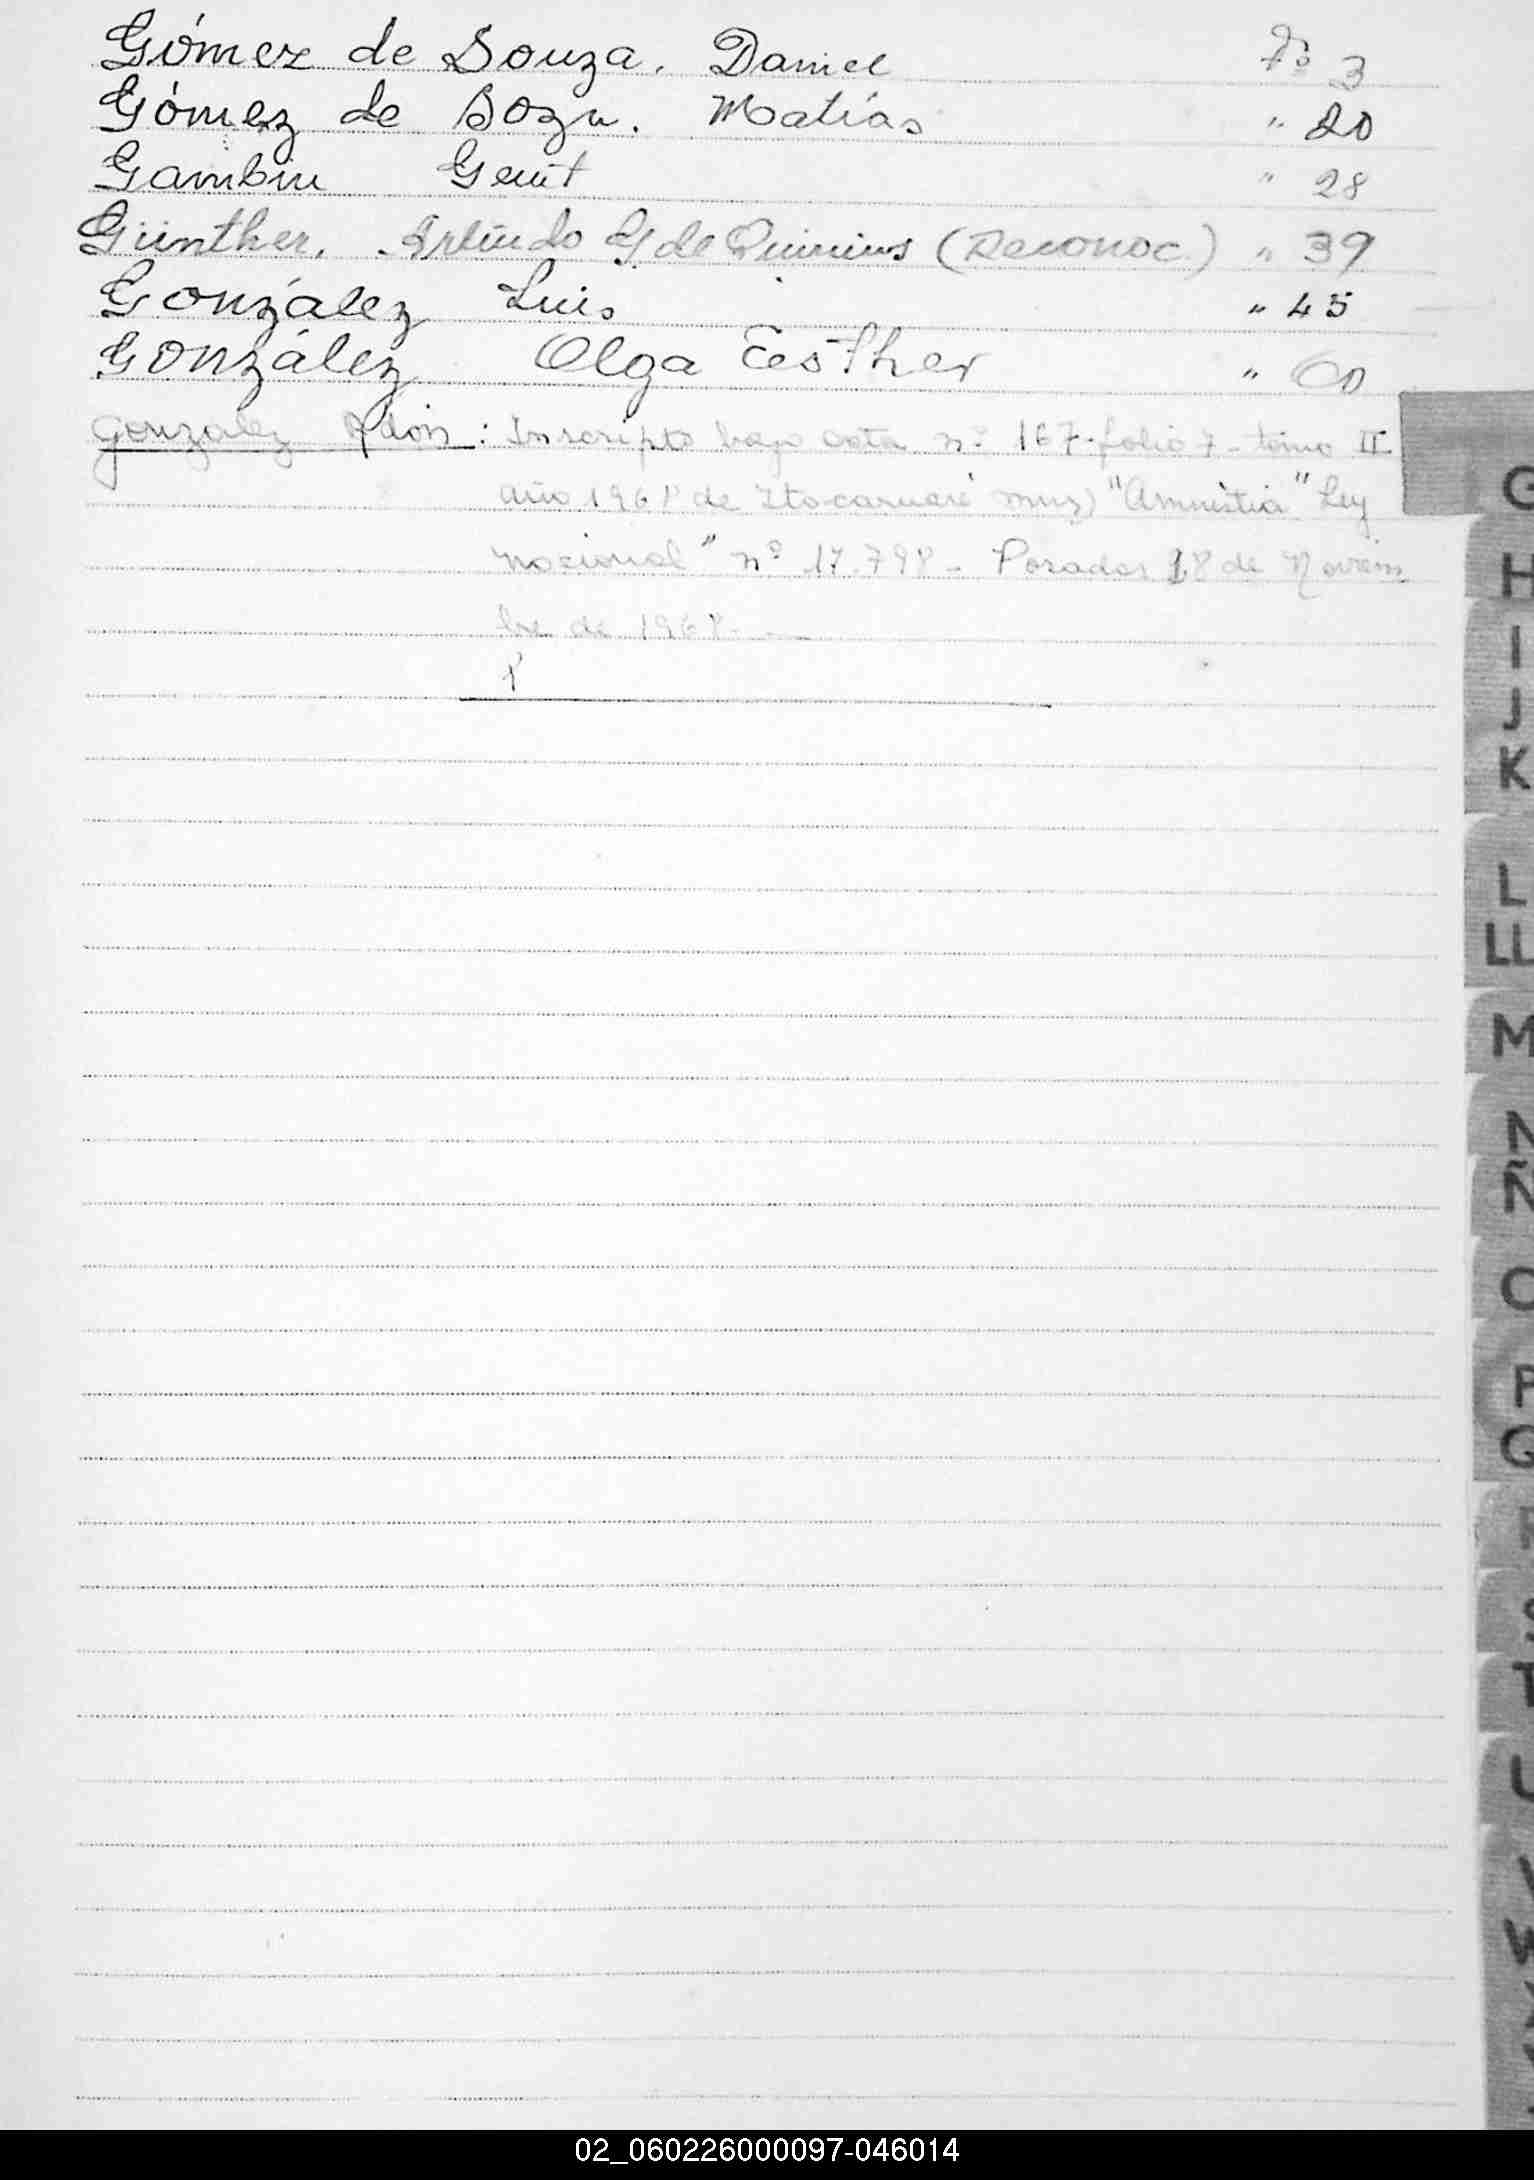 Gómez de Souza. Daniel Fo 3
Gómez de Soza. Matías " 20
Gambin Genit " 28
Günther, Arlindo G de Quinius (Reconoc.) " 39
González Luis " 45
González Olga Esther " 60
Gonzalez Adón: Inscripto bajo acta nº 167-folio 7-tomo II
año 1968 de Itacaruaré mns) "Amnistia" Ley
nacional" nº 17.798- Posadas 18 de Noviem
bre de 1968.-
G
H
I
J
K
L
LL
M
N
Ñ
O
P
Q
R
S
T
U
V
W
02_060226000097-046014